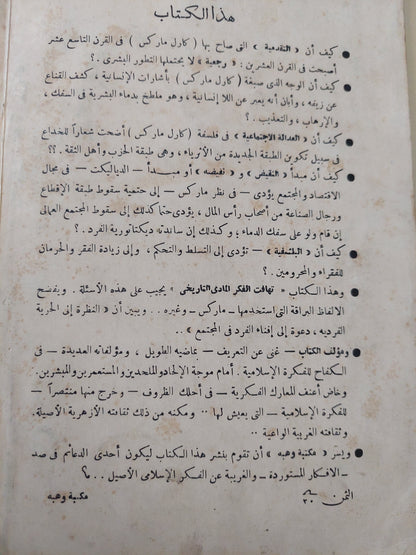 هذا الكتاب
● كيف أن « التقدمية » التى صاح بها ( كارل ماركس ) فى القرن التاسع عشر
أصبحت فى القرن العشرين : « رجعية » لا يحتملها التطور البشرى . ؟
● كيف أن الوجه الذى صبغة ( كارل ماركس ) بأشارات الإنسانية ، كشف القناع
عن زيفه ، وأبان أنه يعبر عن اللا إنسانية ، وهو ملطخ بدماء البشرية فى السفك ،
والإرهاب ، والتعذيب . ؟
● كيف أن « العدالة الاجتماعية » فى فلسفة ( كارل ماركس ) أضحت شعاراً للخداع
فى سبيل تكوين الطبقة الجديدة من الأثرياء ، وهى طبقة الحزب وأهل الثقة . ؟؟
● كيف أن مبدأ « النقيض » و « نقيضه » أو مبدأ – الدياليكت – فى مجال
الاقتصاد والمجتمع يؤدى – فى نظر ماركس – إلى حتمية سقوط طبقة الإقطاع
ورجال الصناعة من أصحاب رأس المال ، يؤدى حتما كذلك إلى سقوط المجتمع العمالى
إن قام ولو على سفك الدماء ؛ وكذلك إن ساندته ديكتاتورية الفرد . ؟
● كيف أن « البلشفية » – تؤدى إلى التسلط والتحكم ، وإلى زيادة الفقر والحرمان
للفقراء والمحرومين . ؟
● وهذا الكتاب « تهافت الفكر المادى التاريخى » يجيب على هذه الأسئلة . ويفضح
الالفاظ البراقة التى استخدمها – ماركس – وغيره . . ويبين أن « النظرة إلى الحرية
الفرديه ، دعوة إلى إفناء الفرد فى المجتمع » . .
● ومؤلف الكتاب – غنى عن التعريف – بماضيه الطويل ، ومؤلفاته العديدة – فى
الكفاح للفكرة الإسلامية . أمام موجة الإلحاد والملحدين والمستعمرين والمبشرين .
وخاض أعنف المعارك الفكرية – فى أحلك الظروف – وخرج منها منتصراً –
للفكرة الإسلامية – التى يعيش لها . . ومكنه من ذلك ثقافته الأزهرية الأصيلة .
وثقافته الغربية الواعية . .
● ويسر « مكتبة وهبه » أن تقوم بنشر هذا الكتاب ليكون أحدى الدعائم فى صد
– الافكار المستوردة – والغريبة عن الفكر الإسلامى الأصيل . . م؟
الثمن ٣٠
مكتبة وهبه